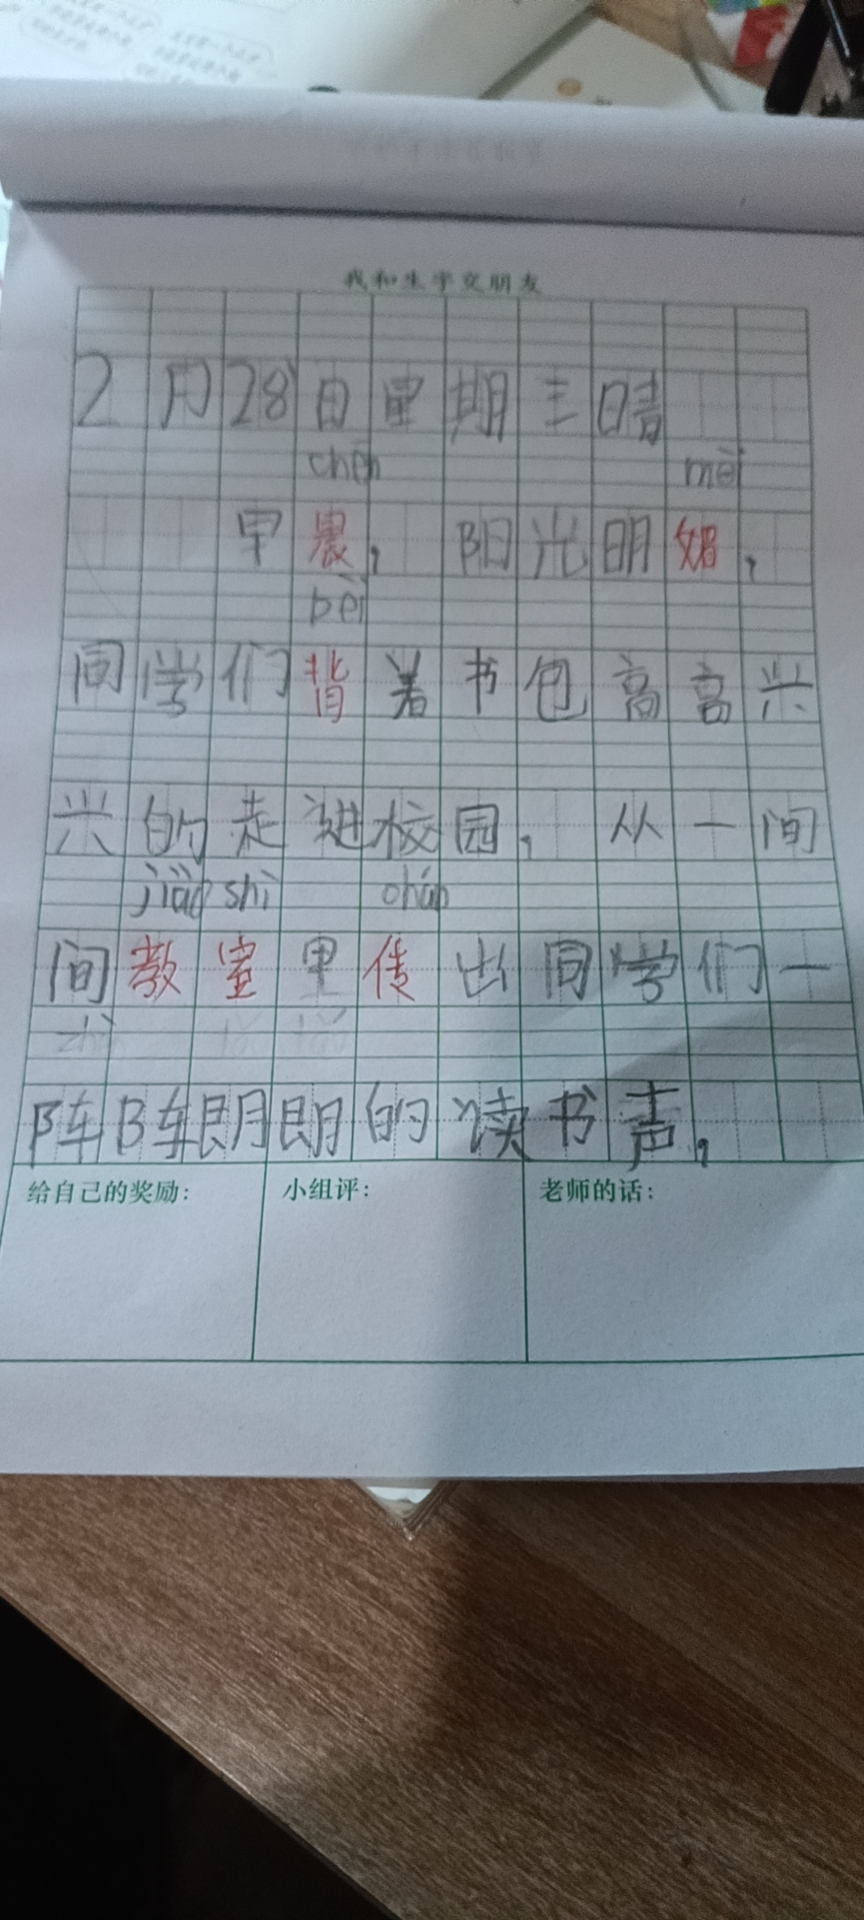 我和生字交朋友
2月28日星期三晴
chén mèi
早晨，阳光明媚，
bēi
同学们背着书包高高兴
兴的走进校园，从一间
jiào shì chuán
间教室里传出同学们一
阵阵朗朗的读书声，
给自己的奖励： 小组评： 老师的话：